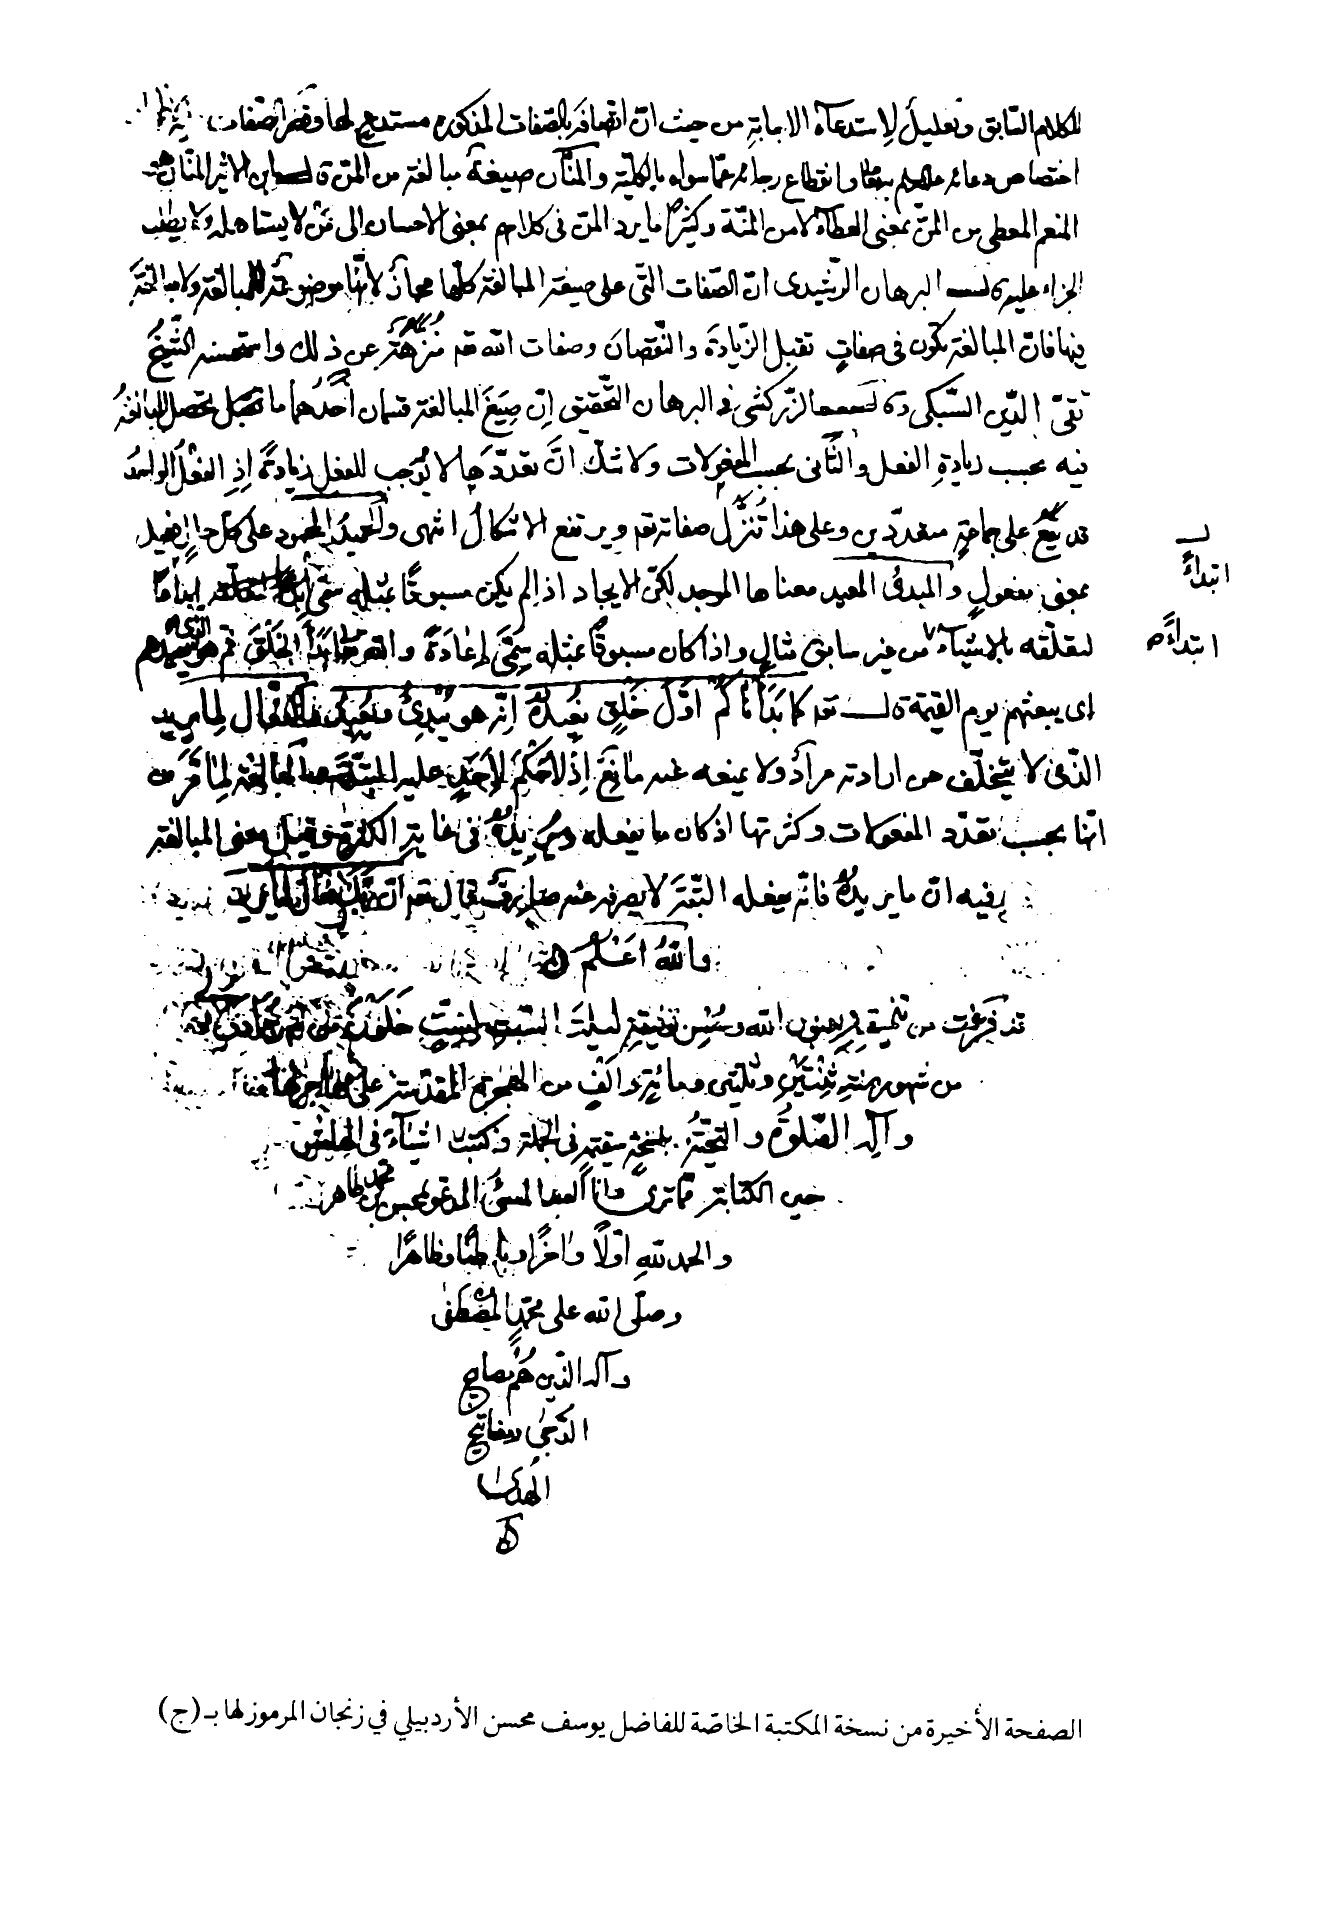 للكلام السابق وتعليل لاستدعاء الاجابة من حيث انّ اتصافه بالصّفات المذكوره مستدع لها وقصر الصّفات
اختصاص دعائه عليه السلم به تعا وانقطاع رجائه عمّا سواه بالكليّة والمنّان صيغة مبالغة من المنّ قال ابن الاثير المنّان هو
المنعم المعطى من المنّ بمعنى العطاء لا من المنّة وكثيرًا ما يرد المنّ فى كلامهم بمعنى الاحسان الى مَن لا يستاهله ولا يطلب
الجزاء عليه قال البرهان الرّشيدى انّ الصّفات التّى على صيغة المبالغة كلّها مجاز لانّها موضوعة للمبالغة ولا مبالغة
فيها فانّ المبالغة تكون فى صفاتٍ تقبل الزّيادة والنّقصان وصفات الله تعه منزهة عن ذلك واستحسنه الشّيخ
تقىّ الدّين السّبكى قال الزّركشى فى البرهان التّحقيق انّ صِيَغَ المبالغة قسمان احدهما ما تحصل المبالغة
فيه بحسب زيادة الفعل والثّانى بحسب المفعولات ولا شكّ انّ تعدّدها لا يُوجب للفعل زيادةً اذِ الفعلُ الواحدُ
قد يقعُ على جماعةٍ متعدّدين وعلى هذا تُنزّل صفاته تعه ويرتفع الاشكالُ انتهى والحميدُ المحمود على كلّ حال فعيل
بمعنى مفعولٍ والمبدئُ المعيد معناها الموجد لكنّ الايجاد اذا لم يكن مسبوقًا بمثله سمّى
لتعلّقه بالاشياء من غير سابق مثالٍ واذا كان مسبوقًا بمثله سُمّى اعَادَةً والله تعه بدأ الخلقَ ثم هو الّذى يعيدهم
اى يبعثهم يوم القيمة قال تعه كما بَدَأنا اوّلَ خَلقٍ نعيدُهُ انّه هو يُبدِئُ ويُعيدُ الفعّال لِما يريد
الذّى لا يتخلّف عن ارادته مرادٌ ولا يمنعه عنه مانعٌ اذ لا حُكمَ لِاَحَدٍ عليه البتّة والمبالغة لِما مرّ من
انّها بحسب تعدّد المفعولات وكثرتها اذ كان ما يفعله ويريدُهُ فى غاية الكثرة وقيل معنى المبالغة
فيه انّ ما يريدُهُ فانّه يفعله البتّة لا يصرفه عنه صارف قال تعه انّ ربّك فعّال لما يريد
والله اعلم
قد فرغت من تنميقه بعون الله وحُسن توفيقه ليلة السّبت لستّ خَلَوْنَ من
من شهور سنةِ ثِنْتَيْن وثلثين ومائة والف من الهجرة المقدّسة على هاجرها
وآلِه الصّلوةُ والتحيّةُ بنسخةٍ سقيمةٍ فى الجملة وكتبت اشياء فى الهامش
حين الكتابة كما ترى وانا العبد المسئ المدعو بمحسن بن محمد طاهر
والحمد للهِ اوّلًا واخرًا وباطنًا وظاهرًا
وصلّى الله على محمّدٍ المصطفى
وآله الذّين هُم مصابيح
الدّجى ومفاتيح
الهدى
ابتداءً
ابتداءً
الصفحة الأخيرة من نسخة المكتبة الخاصّة للفاضل يوسف محسن الأردبيلي في زنجان المرموز لها بـ (ج)